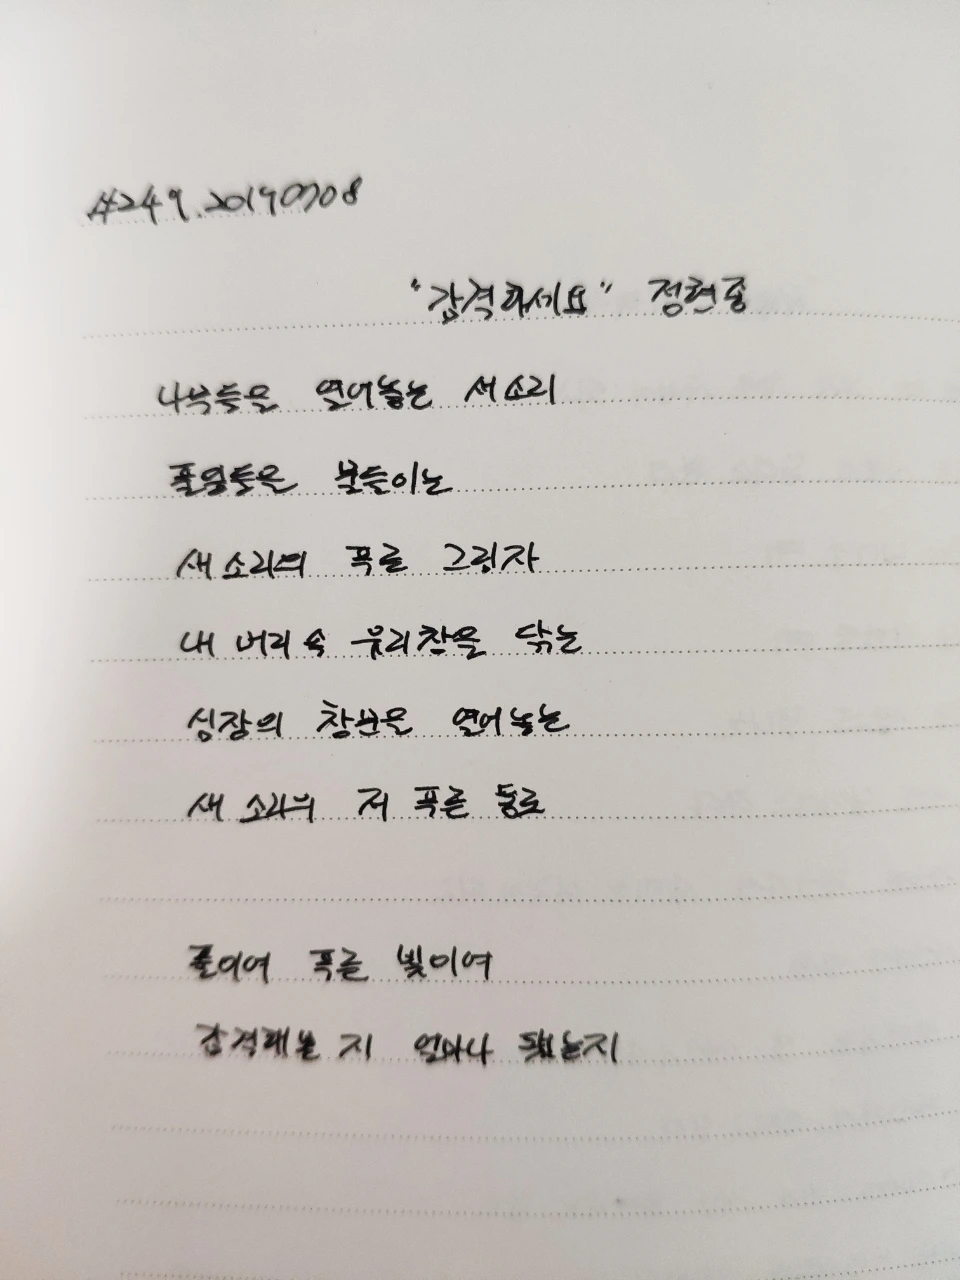 #249.20190708
"감격하세요" 정현종
나무들을 열어놓는 새소리
풀잎들을 물들이는
새소리의 푸른 그림자
내 머리속 유리창을 닦는
심장의 창문을 열어놓는
새소리의 저 푸른 통로
풀이여 푸른 빛이여
감격해본 지 얼마나 됐는지